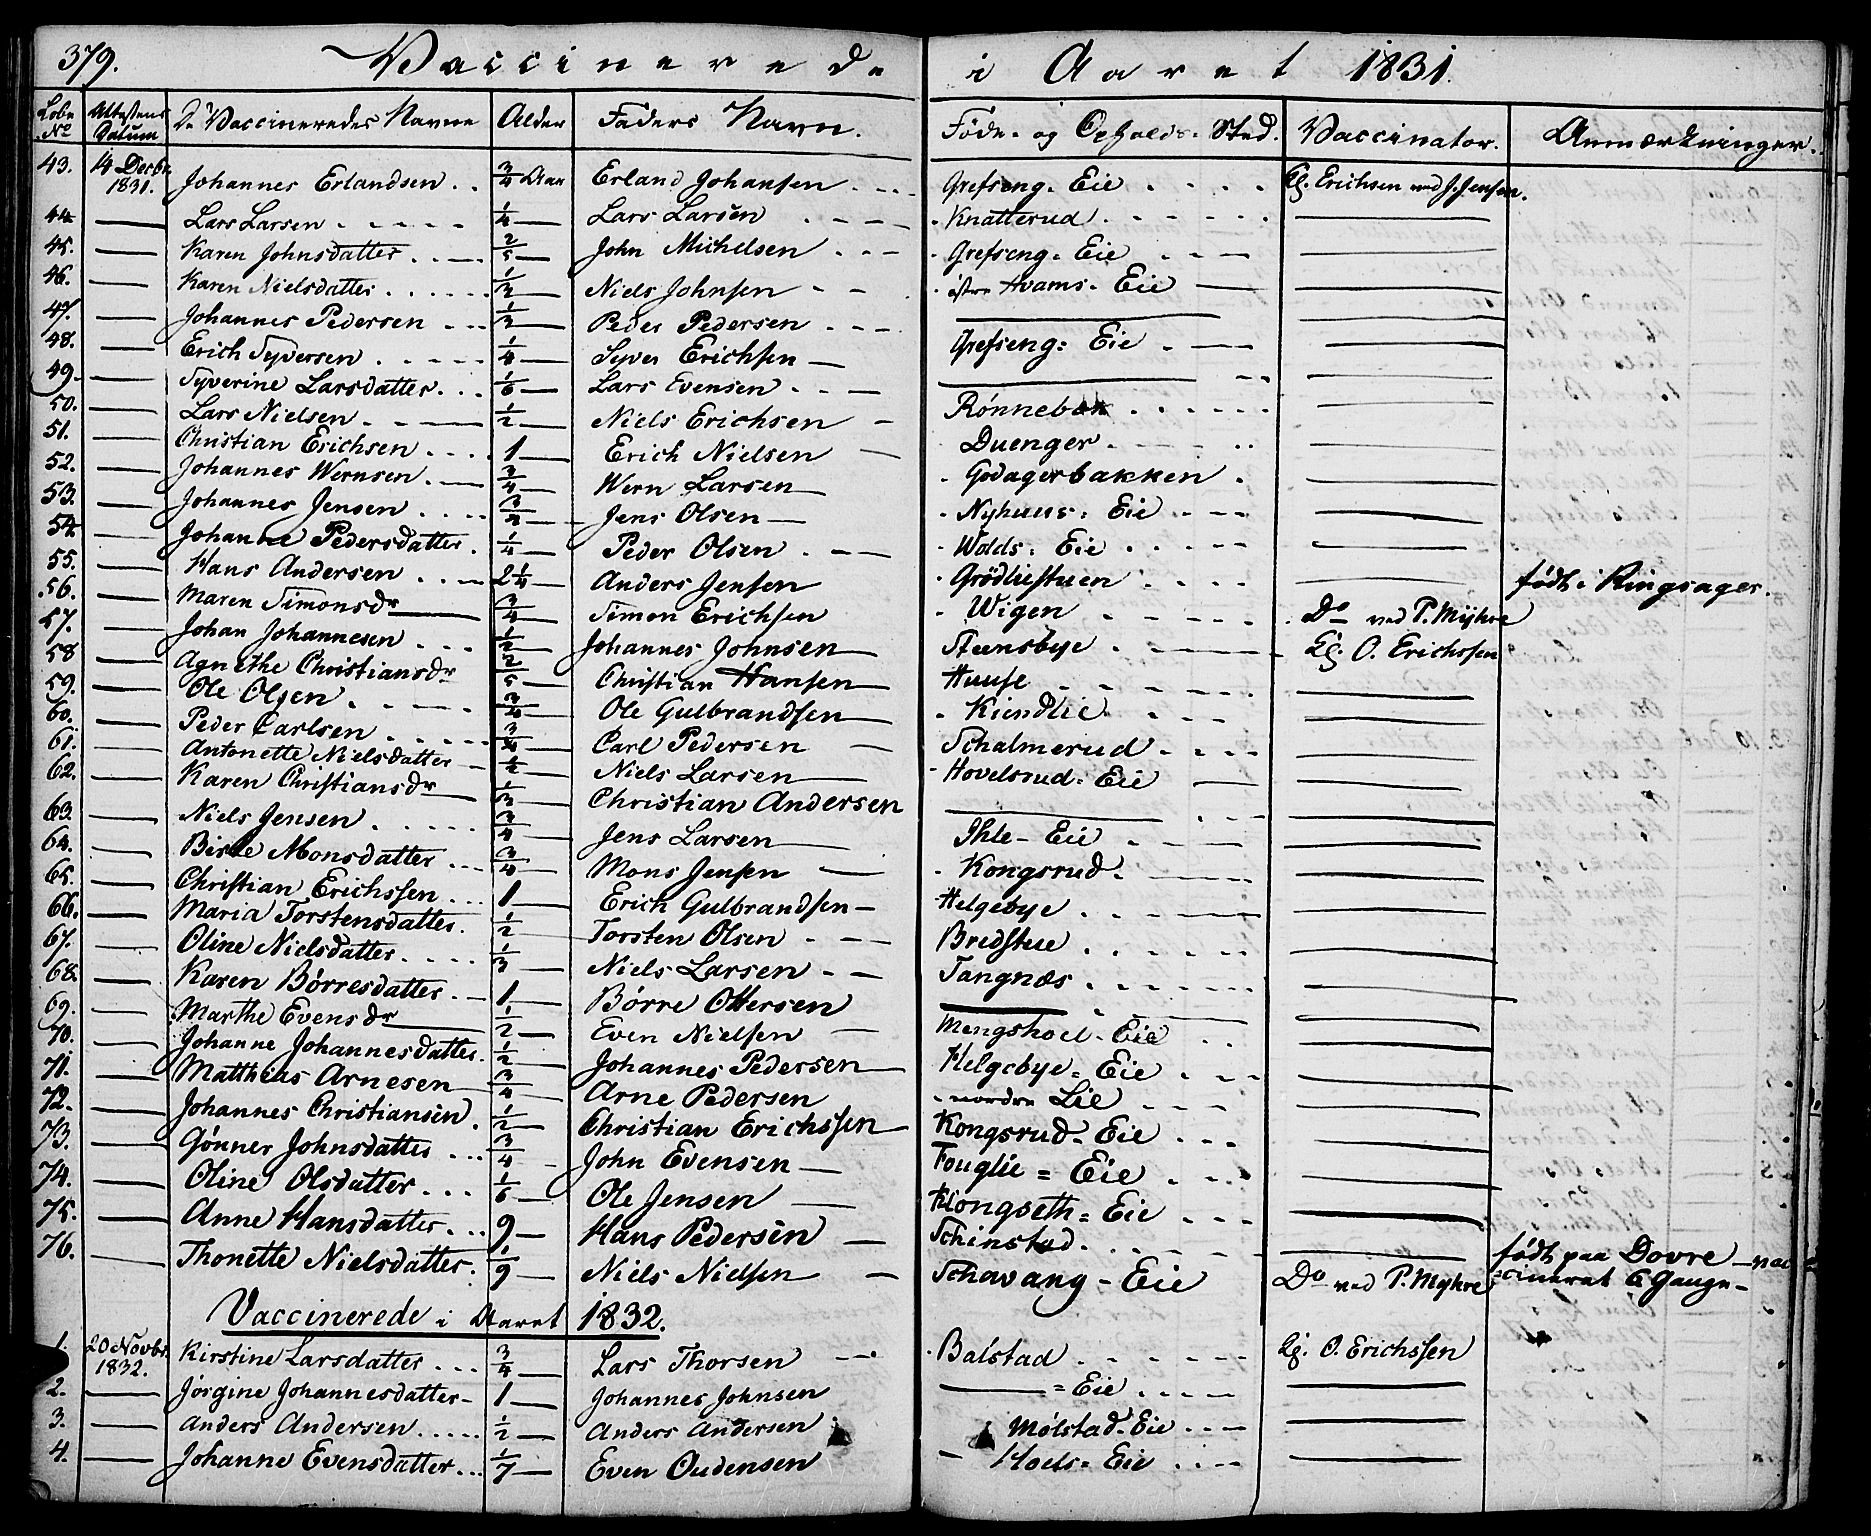 379. Vaccinerede i Aaret 1831.
Løbe No | Attestens Datum | De Vaccineredes Navne | Alder | Faders Navn. | Føde- og Opholds-Sted. | Vaccinator. | Anmærkninger.
43. 14 Decbr. 1831. Johannes Erlandsen . . 3/4 Aar Erland Johansen . . . Grefseng-Eie . . . . Kg. Erichsen ved J. Jensen.
44 — Lars Larsen . . . . . 1/4 — Lars Larsen - - - - Knatterud . . . . . . —
45. — Karen Johnsdatter . . . 2/5 — John Michelsen . . - - Grefseng-Eie - - - —
46. — Karen Nielsdatter . . . . . . 1/2 — Niels Johnsen - - - østre Hvams-Eie — —
47. — Johannes Pedersen . . . 1/3 — Peder Pedersen . . . — —
48. — Erich Syversen . . . . . 1/4 — Syver Erichsen — Grefseng-Eie . — —
49. — Syverine Larsdatter. . . 1/6 — Lars Evensen . . . — —
50. — Lars Nielsen . . — 1/2 — Niels Erichsen — Rønnebek . . . . . . —
51. — Christian Erichsen . . . . 1 — Erich Nielsen — Duenger . . . . . —
52. — Johannes Wernsen. . — 3/4 — Wern Larsen — - Godagerbakken . —
53. — Johannes Jensen . . . . 3/4 — Jens Olsen — - Nyhuus-Eie . - - —
54 — Johanne Pedersdatter. 1/4 — Peder Olsen . - — - Wolds-Eie . . . . . —
55. — Hans Andersen . . . — 2 1/4 — Anders Jensen - Grödliestuen . . . . — født i Ringsager.
56. — Maren Simonsdr — 3/4 — Simon Erichsen - Wigen . . . . . Do ved P. Myhre
57. — Johan Johannesen . . . 1/2 — Johannes Johnsen — Steensbye . — Kg. O. Erichssen
58 — Agnethe Christiansdr 2/5 — Christian Hansen — Huuse - - - - - - —
59. — Ole Olsen . . . . . 3/4 — Ole Gulbrandsen — - Kiendlie . . . . —
60. — Peder Carlsen . . . . . 3/4 — Carl Pedersen — Schalmerud . . . . —
61. — Antonette Nielsdatter — 1/2 — Niels Larsen — - Hovelsrud-Eie — —
62. — Karen Christiansdr — 1/3 — Christian Andersen — —
63. — Niels Jensen . . . . . 3/4 — Jens Larsen — Ihle-Eie . - - - —
64. — Birte Monsdatter . . . 3/4 — Mons Jensen — - Kongsrud. - — —
65. — Christian Erichssen . . . 1 — Erich Gulbrandsen — Helgebye . . . . —
66. — Maria Torstensdatter. 1/2 — Torsten Olsen . - - Bredstue . . . . . . —
67. — Oline Nielsdatter . . . . 1/3 — Niels Larsen - - Tangnæs . . . . . . —
68 — Karen Børresdatter . — 1 — Børre Ottersen — —
69. — Marthe Evensdr — 1/2 — Even Nielsen — Mengshoel-Eie . . —
70. — Johanne Johannesdatter. 1/2 — Johannes Pedersen — Helgebye-Eie . . . —
71. — Matthias Arnesen — 3/4 — Arne Pedersen - nordre Lie - - - —
72. — Johannes Christiansen. 1/2 — Christian Erichssen — Kongsrud-Eie . . . —
73. — Gønner Johnsdatter . . . 3/4 - John Evensen — Fouglie = Eie . . . . —
74. — Oline Olsdatter . . . 1/6 — Ole Jensen — Klongseth = Eie . . . —
75. — Anne Hansdatter . . . 9 — Hans Pedersen — Schinstad . . . . . . — født paa Dovre – vac
76. — Thonette Nielsdatter. 1/9 — Niels Nielsen — Schavang-Eie Do ved P. Myhre cineret 6 Gange –
Vaccinerede i Aaret 1832.
1. 20 Novbr. 1832. Kirstine Larsdatter . . . 3/4 — Lars Thorsen — - Balstad . . . . . . Kg. O. Erichssen
2. — Jørgine Johannesdatter - 1 — Johannes Johnsen — = Eie . . . . —
3. — Anders Andersen . . . . . 1/2 — Anders Andersen Mølstad-Eie . . . . —
4. — Johanne Evensdatter . . . 1/7 — Even Oudensen — Hoels = Eie . . . . —